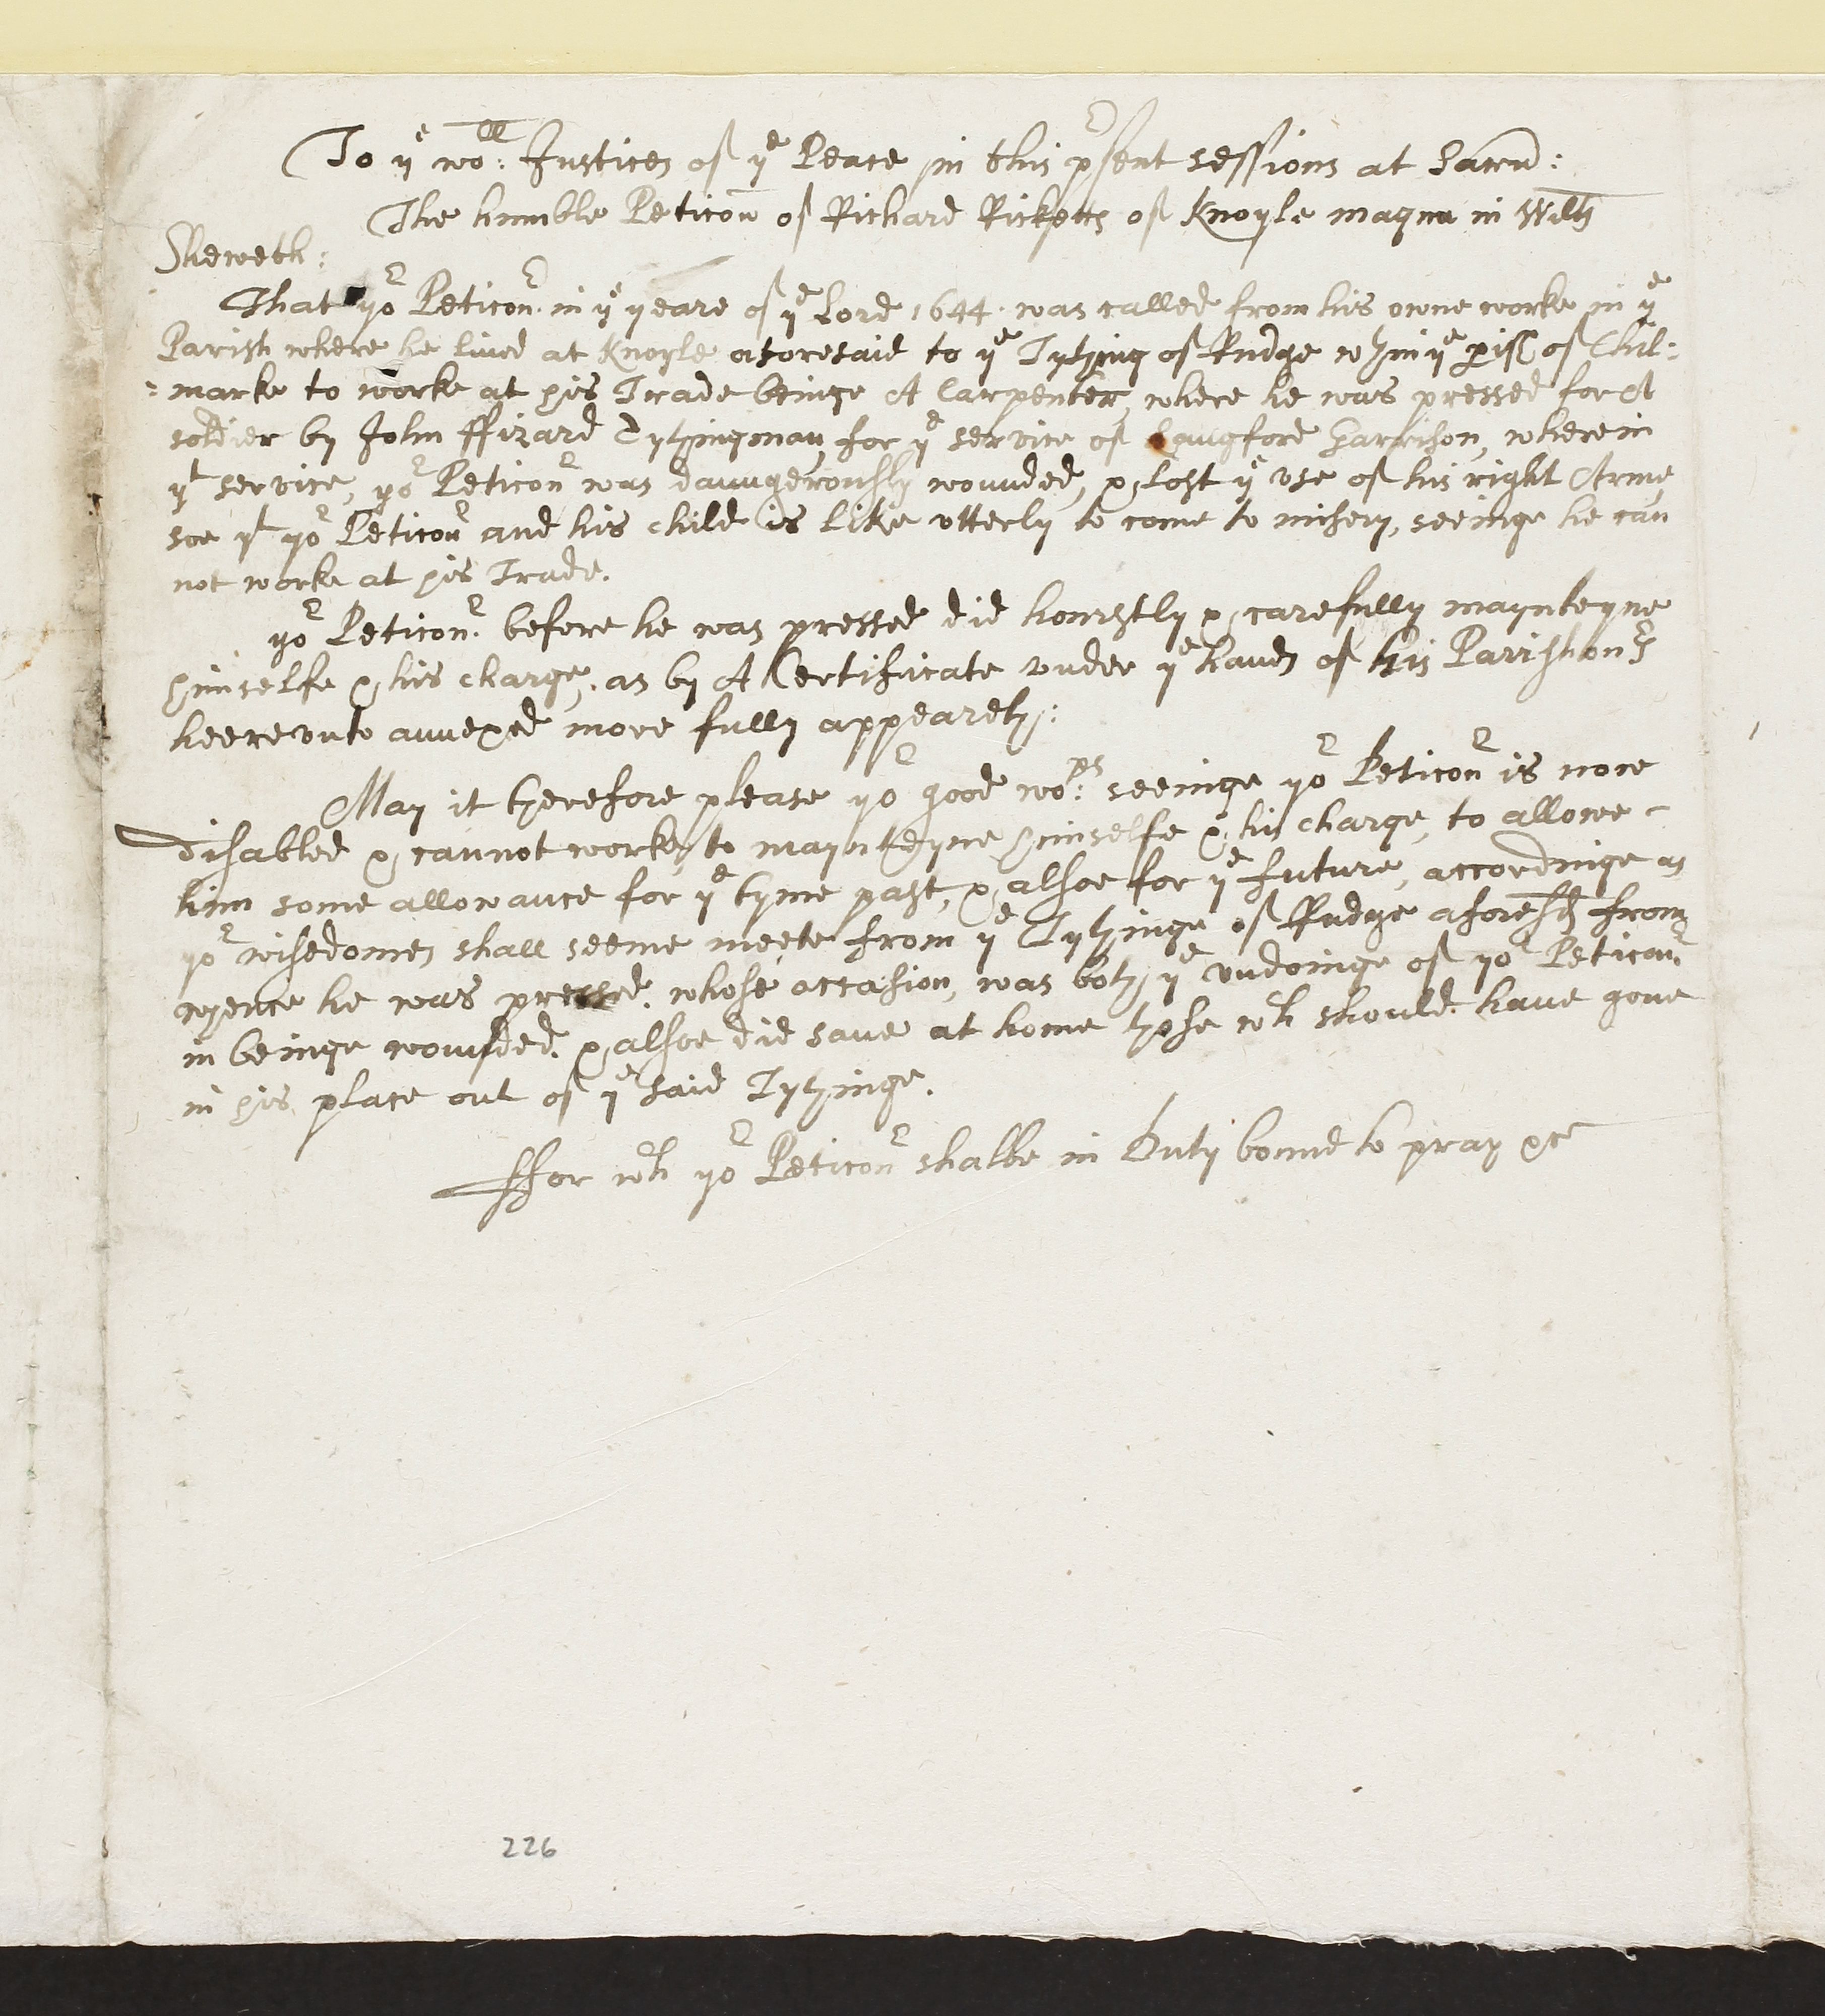 To ye wo:ll Justices of ye Peace in this pʳsent sessions at Sarū:
The humble Peticōn of Richard Ricketts of Knoyle magna in Wiltſ
Sheweth:
That yoʳ Peticonʳ. in ye yeare of ye Lord 1644. was called from his owne worke in ye
Parish where he lived at Knoyle aforesaid to ye Tything of Rudge wthin ye pish of Chil:
:marke to worke at his Trade beinge A Carpenter, where he was pressed for A
soldier by John ffizard Tythingman, for ye service of Langford Garrison, wherein
yt service, yoʳ Peticonʳ was daungerously wounded, & lost ye vse of his right Arme,
soe yt yoʳ Peticonʳ and his child is like vtterly to come to misery, seeinge he can
not worke at his Trade.
yoʳ Peticonʳ. before he was pressed did honestly & carefully maynteyne
himselfe & his charge, as by A Certificate vnder ye hands of his Parrishonʳs
heerevnto annexed more fully appeareth:
May it therefore please yoʳ good wo:ps seeinge yoʳ Peticonʳ is now
disabled & cannot worke, to maynteyne himselfe & his charge, to allowe
him some allowance for ye tyme past, & alsoe for ye future, accordinge as
yoʳ wisedomes shall seeme meete from ye Tythinge of Rudge aforesd from
whence he was pressed. whose occasion, was both ye vndoinge of yoʳ Peticonʳ.
in beinge wounded. & alsoe did save at home those wch should have gone
in his place out of ye said Tythinge.
ffor wch yoʳ Peticonʳ shalbe in Duty bound to pray &ce
226